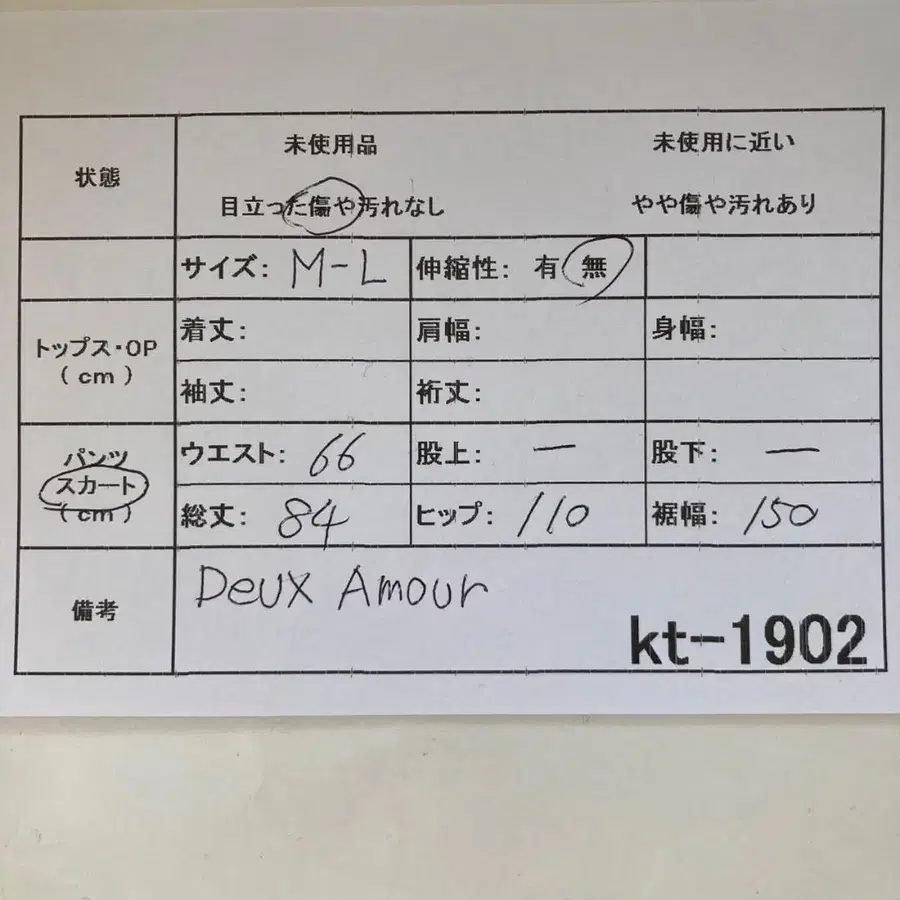 状態
未使用品 未使用に近い
目立った傷や汚れなし やや傷や汚れあり
サイズ: M-L 伸縮性: 有 無
トップス・OP
(cm)
着丈: 肩幅: 身幅:
袖丈: 裄丈:
パンツ
スカート
(cm)
ウエスト: 66 股上: ー 股下: ー
総丈: 84 ヒップ: 110 裾幅: 150
備考
Deux Amour
kt-1902